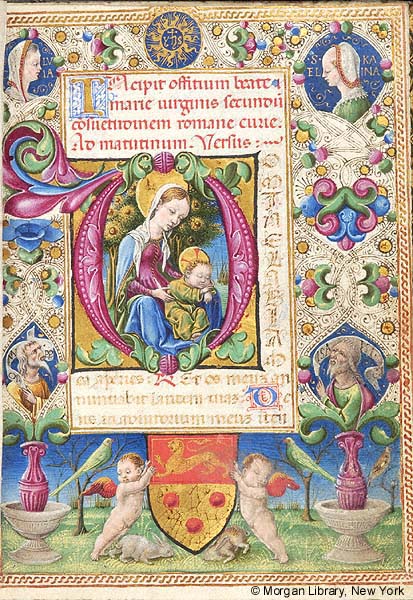 yhs
LVIA
S·EL KA INA
INcipit offitium beate
marie uirginis secundũ
cõsuetudinem romane curie.
Ad matutinum. Versus:
D OMINE LABIA M
ea aperies. R Et os meuz an
nuntiabit laudem tuaz. De
us in adiutorium meuz
© Morgan Library, New York